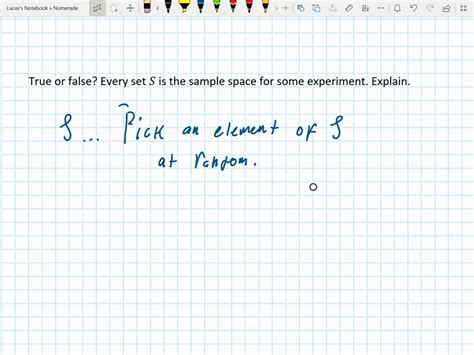 Lucas's Notebook » Numerade
True or false? Every set S is the sample space for some experiment. Explain.
S ... Pick an element of S
at random.